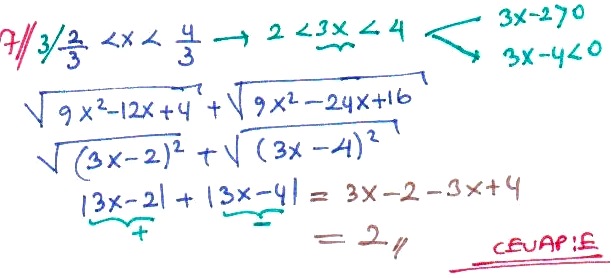 7// 3/ 2/3 < x < 4/3 → 2 < 3x < 4
3x-2>0
3x-4<0
√(9x²-12x+4) + √(9x²-24x+16)
√((3x-2)²) + √((3x-4)²)
|3x-2| + |3x-4| = 3x-2-3x+4
+ -
= 2//
CEVAP:E